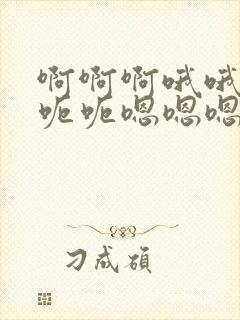 啊啊啊哦哦
呃呃嗯嗯嗯
刁成硕